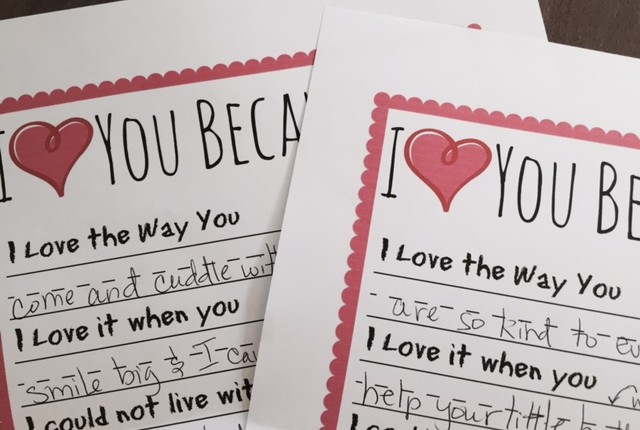 I YOU BECA
I Love the Way You
come and cuddle wit
I Love it when you
smile big & I ca
I could not live wit
I YOU BE
I Love the Way You
are so kind to ev
I Love it when you
help your little b